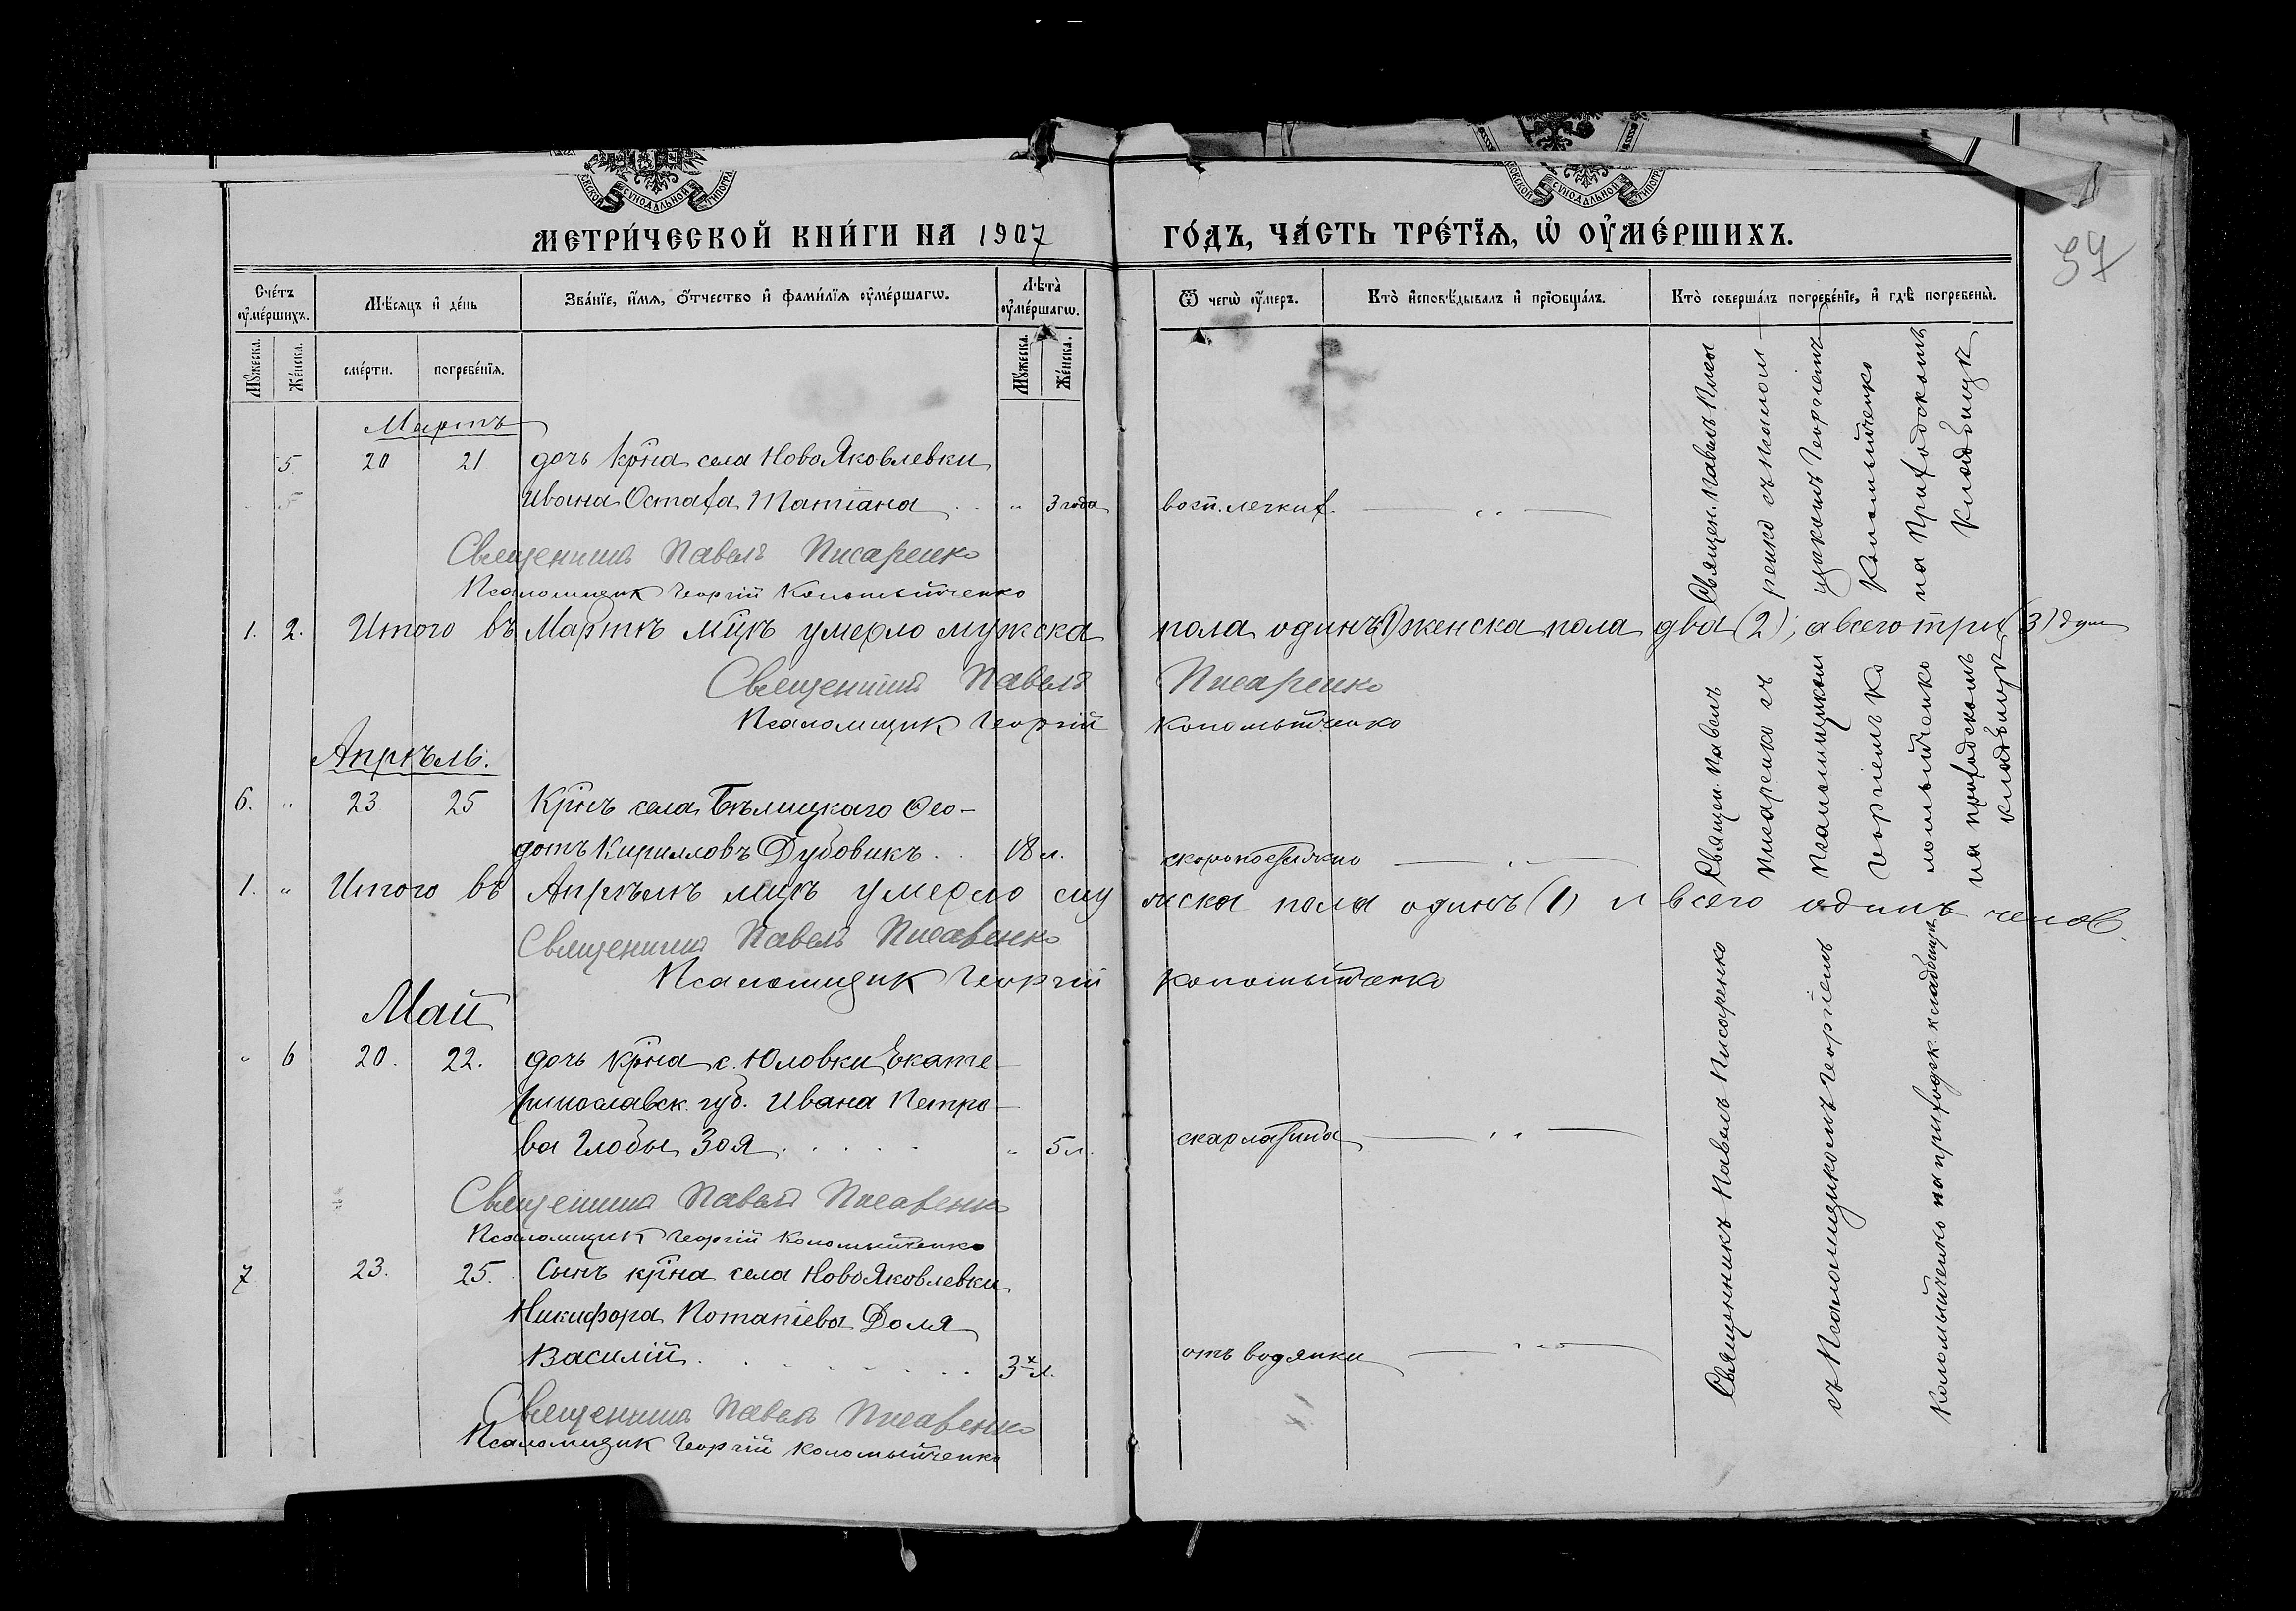 МЕТРИ́ЧЕСКОЙ КНИ́ГИ НА 1907 ГО́ДЪ, ЧА́СТЬ ТРЕ́ТЇѦ, Ѡ҆ ОУ҆МЕ́РШИХЪ.
97
Сче́тъ оу҆ме́ршихъ.
Мѣ́сяцъ и҆ де́нь
Зва́нїе, и҆́мѧ, о҆́тчество и҆ фами́лїѧ оу҆ме́ршагѡ.
Лѣта̀ оу҆ме́ршагѡ.
Ѿ чегѡ̀ оу҆́меръ.
Кто̀ и҆сповѣ́дывалъ и҆ прїобща́лъ.
Кто̀ соверша́лъ погребе́нїе, и҆ гдѣ̀ погребены̀.
Му́жеска.
Же́нска.
сме́рти.
погребе́нїѧ.
Му́жеска.
Же́нска.
Мартъ
5. 20 21 дочь крна села НовоЯковлевки
Ивана Остаха Татіана " 3 года восп. легких.
Священ. Павелъ Писа
ренко съ псалом
щикомъ Георгіемъ
Коломыйченко
на Приходскомъ
Кладбищѣ
Священникъ Павелъ Писаренко
Псаломщик Георгій Коломыйченко
1. 2. Итого въ Мартѣ м̃цѣ умерло мужска пола одинъ (1) женска пола два (2); а всего три (3) душ
Священникъ Павелъ Писаренко
Псаломщик Георгій Коломыйченко
Апрѣль.
6. " 23 25 Крнъ села Бѣлицкаго Ѳео-
дотъ Кирилловъ Дубовикъ. 18 л. скоропостижно
Священ. Павелъ
Писаренко съ
Псаломщиком
Георгіемъ Ко
ломыйченко
на приходскомъ
кладбищѣ
1. " Итого въ Апрѣлѣ мцѣ умерло му жска пола одинъ (1) и всего одинъ челов.
Священникъ Павелъ Писаренко
Псаломщик Георгій Коломыйченко
Май
" 6 20. 22. дочь крна с. Юловки Екате-
ринославск. губ. Ивана Петро-
ва Глобы Зоя " 5 л. скарлатина
Священникъ Павелъ Писаренко
съ Псаломщикомъ Георгіемъ
Коломыйченко на приходск. кладбищѣ
Священникъ Павелъ Писаренко
Псаломщик Георгій Коломыйченко
7 23. 25. Сынъ крна села НовоЯковлевки
Никифора Потапіева Доля
Василій 3х л. отъ водянки
Священникъ Павелъ Писаренко
Псаломщик Георгій Коломыйченко